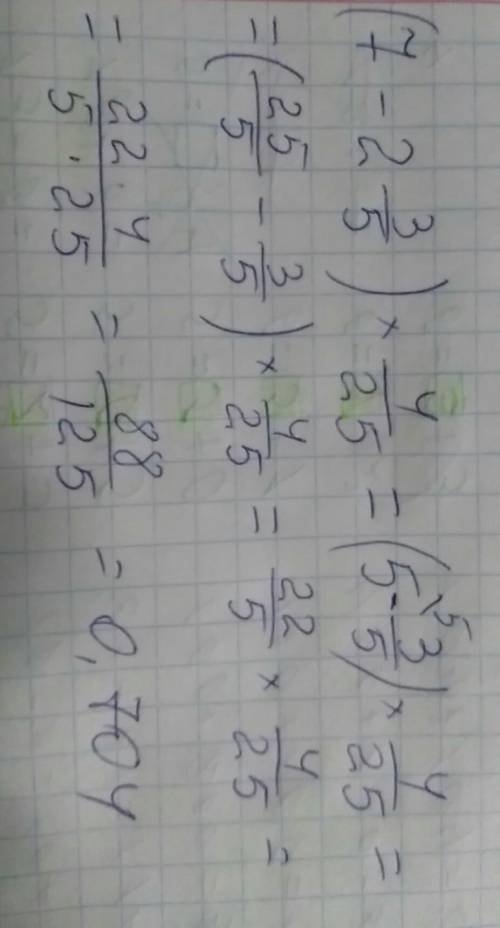 (7 - 2 3/5) × 4/25 = (5 - 3/5)^5 × 4/25 =
= (25/5 - 3/5) × 4/25 = 22/5 × 4/25 =
= 22 · 4/5 · 25 = 88/125 = 0,704